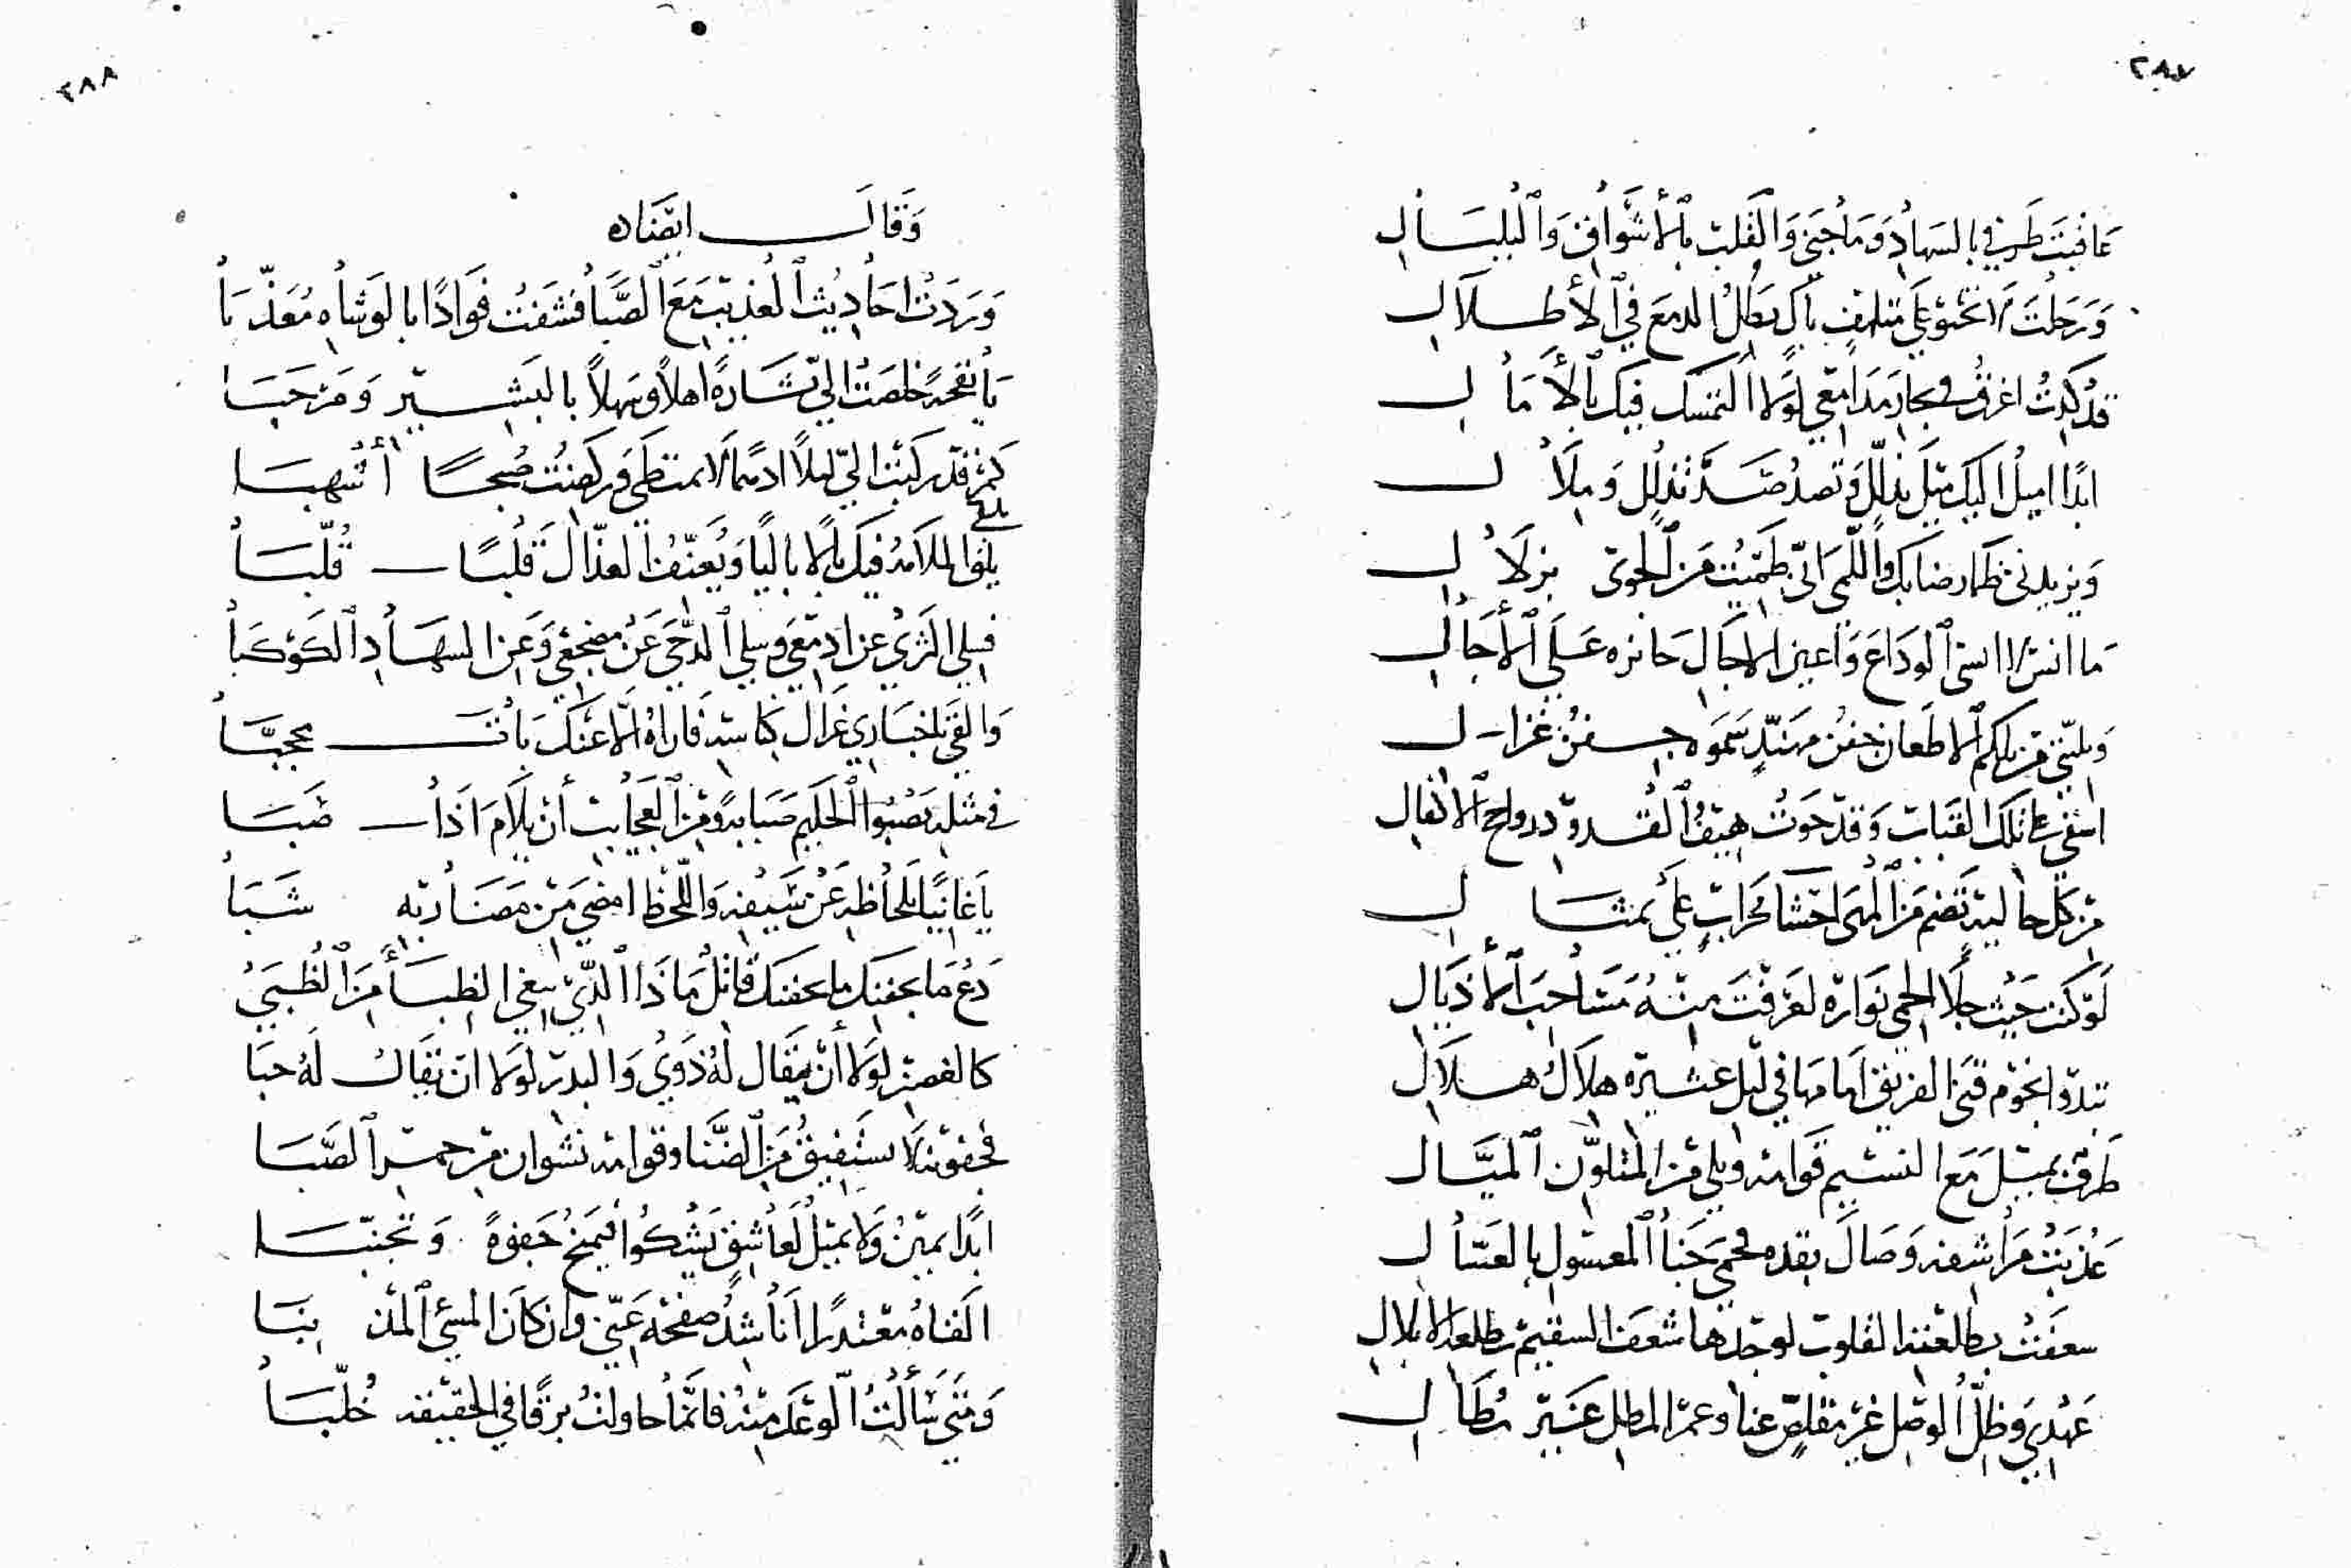 ٢٨٧
عاقبتَ طرفي بالسهاد وما جنى والقلب بالأشواق والبلبال
ورحلت لا تحنو على متلهف باك يطل الدمع في الأطلال
قد كدت اغرق في بحار مدامعي لولا التمسك فيك بالآمال
ابدا اميل اليك ميل تذلل وتصد صد تدلل وملال
ويزيدني ظما رضابك واللمى اني ظميت من الجوى بزلال
ما انس لا انسى الوداع واعين الآجال حائره على الآجال
وبليتي من تلكم الاظعان جفن مهند سموه جفن غزال
اسفي على تلك القباب وقد حوت هيف القدود رواجح الاكفال
من كل حالية تضم من المها احشا محراب على تمثال
لو كنت حيث جلا الحمى نواره لعرفت منه مساحب الأذيال
تبدو نجوم قنى الفريق امامها في ليل عشيره هلال هلال
طرف يميل مع النسيم قوامه ويلي من المتلون الميال
عذبت مراشفه وصال بقده فحمى جنا المعسول بالعسال
شعفت بطلعته القلوب لوجدها شعف السقيم بطلعة الابلال
عهدي وظل الوصل غير مقلص عنا وعمر المطل غير مطال
٢٨٨
وقال ايضاه
وردت احاديث العذيب مع الصبا فشفت فوادًا بالوشاه معذبا
يا نفحة خلصت الي بشارة اهلا وسهلا بالبشير ومرحبا
كم قد ركبت الي ليلا ادهما لا يمتطى وركضت صبحا أشهبا
يلقى الملامة فيك بالا باليا ويعنف العذال قلبا قلبا
فسلي الثرى عن ادمعي وسلي الدجى عن مضجعي وعن السهاد الكوكبا
والقي باخباري غزال كناسه فاراه الا عنك بات محجبا
في مثله يصبوا الحكيم صبابة ومن العجايب أن يلام اذا صبا
يا غانيا بلحاظه عن سيفه واللحظ امضى من مضاربه شبا
دع ما بجفنك ما بجفنك قاتل ماذا الذي يبغي الظبا من الظبى
كالغصن لولا أن يقال له ذوى والبدر لولا ان يقال له خبا
فجفونه لا يستفيق من الضنا وقوامه نشوان من خمر الصبا
ابدا يمين ولا يميل لعاشق يشكوا فيمنح جفوة وتجنبا
القاه معتذرا اناشد صفحه عني وان كان المسئ المذنبا
ومتى سألت الوعد منه فانما حاولت برقا في الحقيقه خلبا